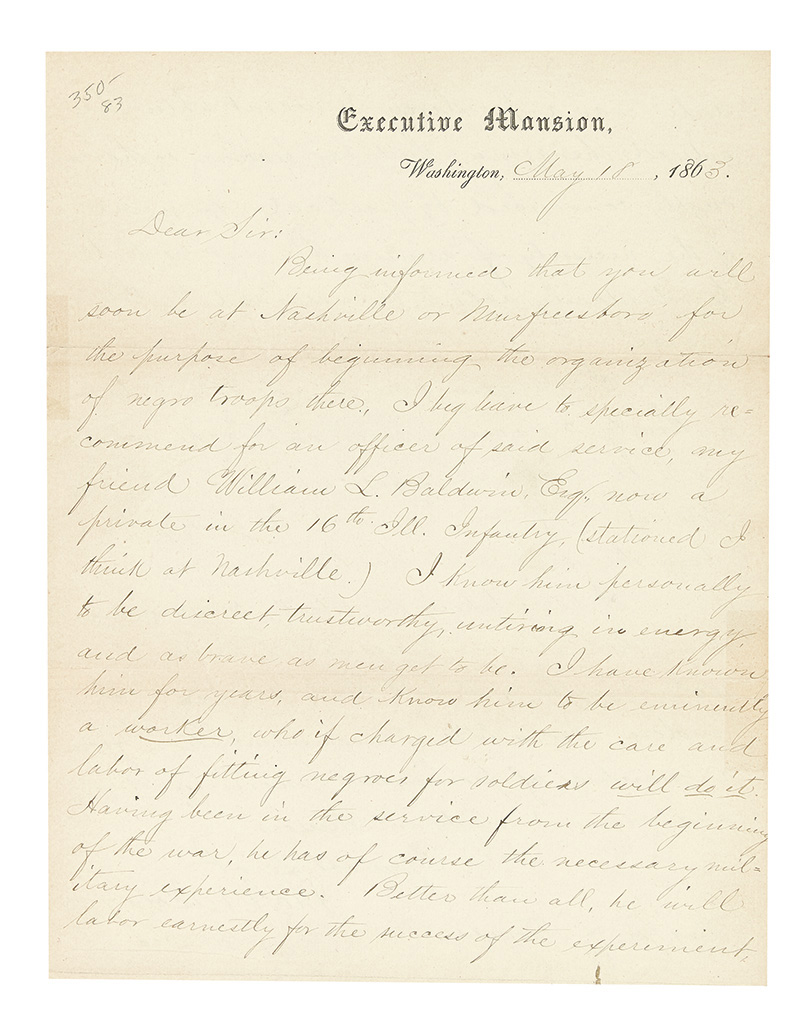 350-
83
Executive Mansion,
Washington, May 18, 1863.
Dear Sir:
Being informed that you will
soon be at Nashville or Murfreesboro' for
the purpose of beginning the organization
of negro troops there, I beg leave to specially re=
commend for an officer of said service, my
friend William L. Baldwin, Esq., now a
private in the 16th Ill. Infantry, (stationed I
think at Nashville.) I know him personally
to be discreet, trustworthy, untiring in energy,
and as brave as men get to be. I have known
him for years, and know him to be eminently
a worker, who if charged with the care and
labor of fitting negroes for soldiers will do it.
Having been in the service from the beginning
of the war, he has of course the necessary mil=
itary experience. Better than all, he will
labor earnestly for the success of the experiment,